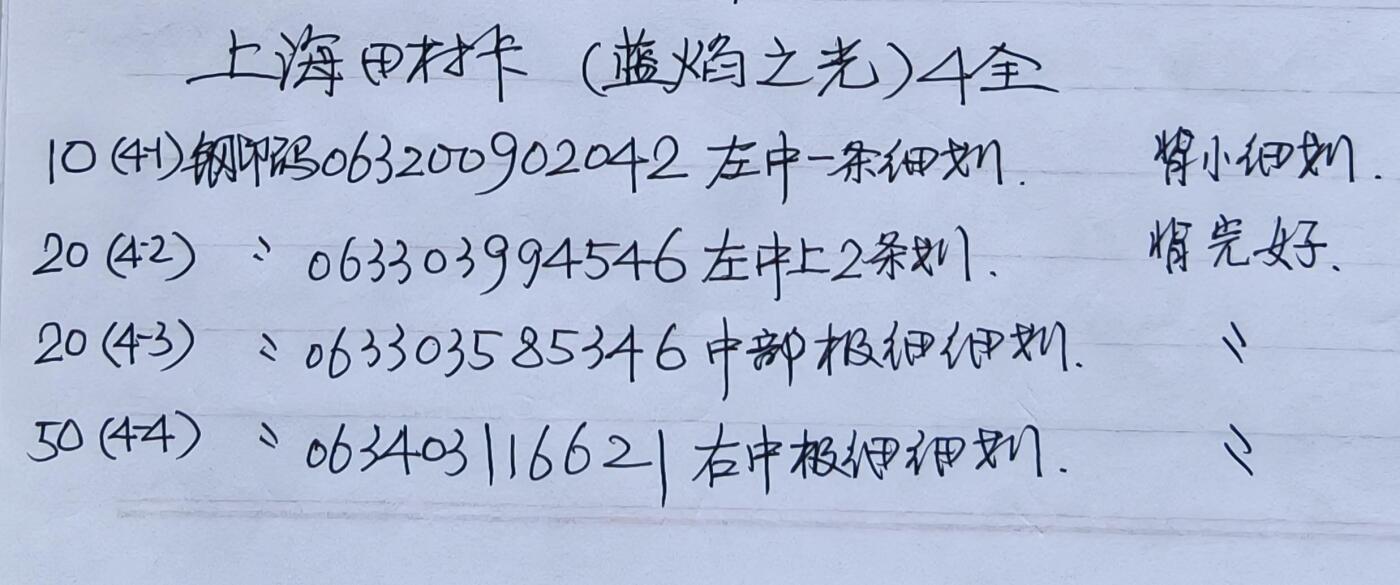 上海田村卡（蓝焰之光）4全
10（4-1）钢印码063200902042 左中一条细划. 背小细划.
20（4-2） 〃 063303994546 左中上2条划. 背完好.
20（4-3） 〃 063303585346 中部极细细划. 〃
50（4-4） 〃 063403116621 右中极细细划. 〃